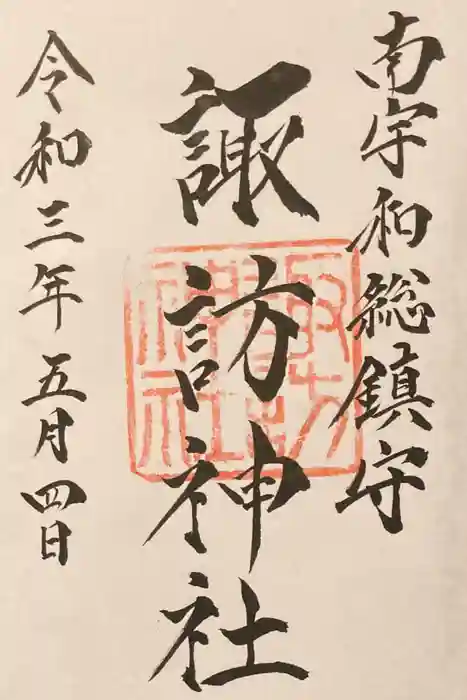 南宇和総鎮守
諏訪神社
諏訪神社
令和三年五月四日